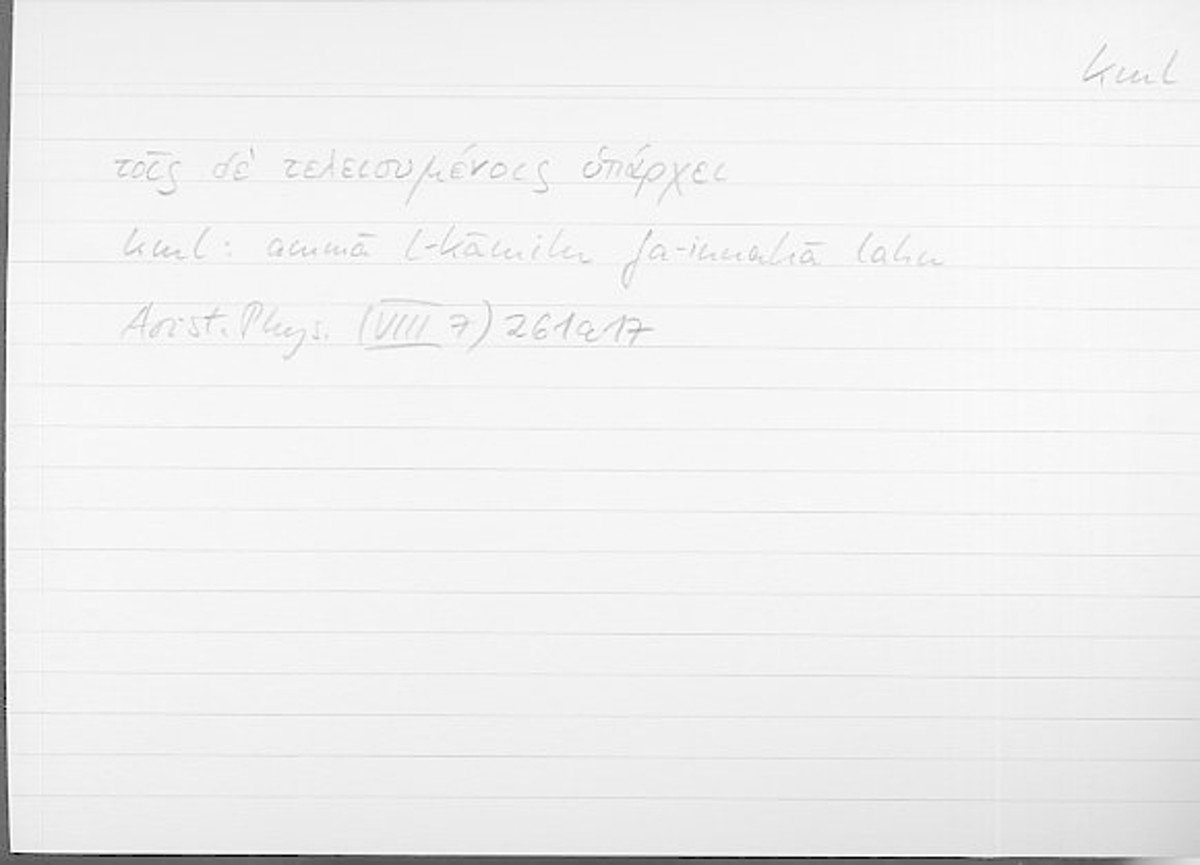 kml
τοῖς δὲ τελειουμένοις ὑπάρχει
kml: ammā l-kāmilu fa-innahā lahu
Arist. Phys. (VIII 7) 261a17